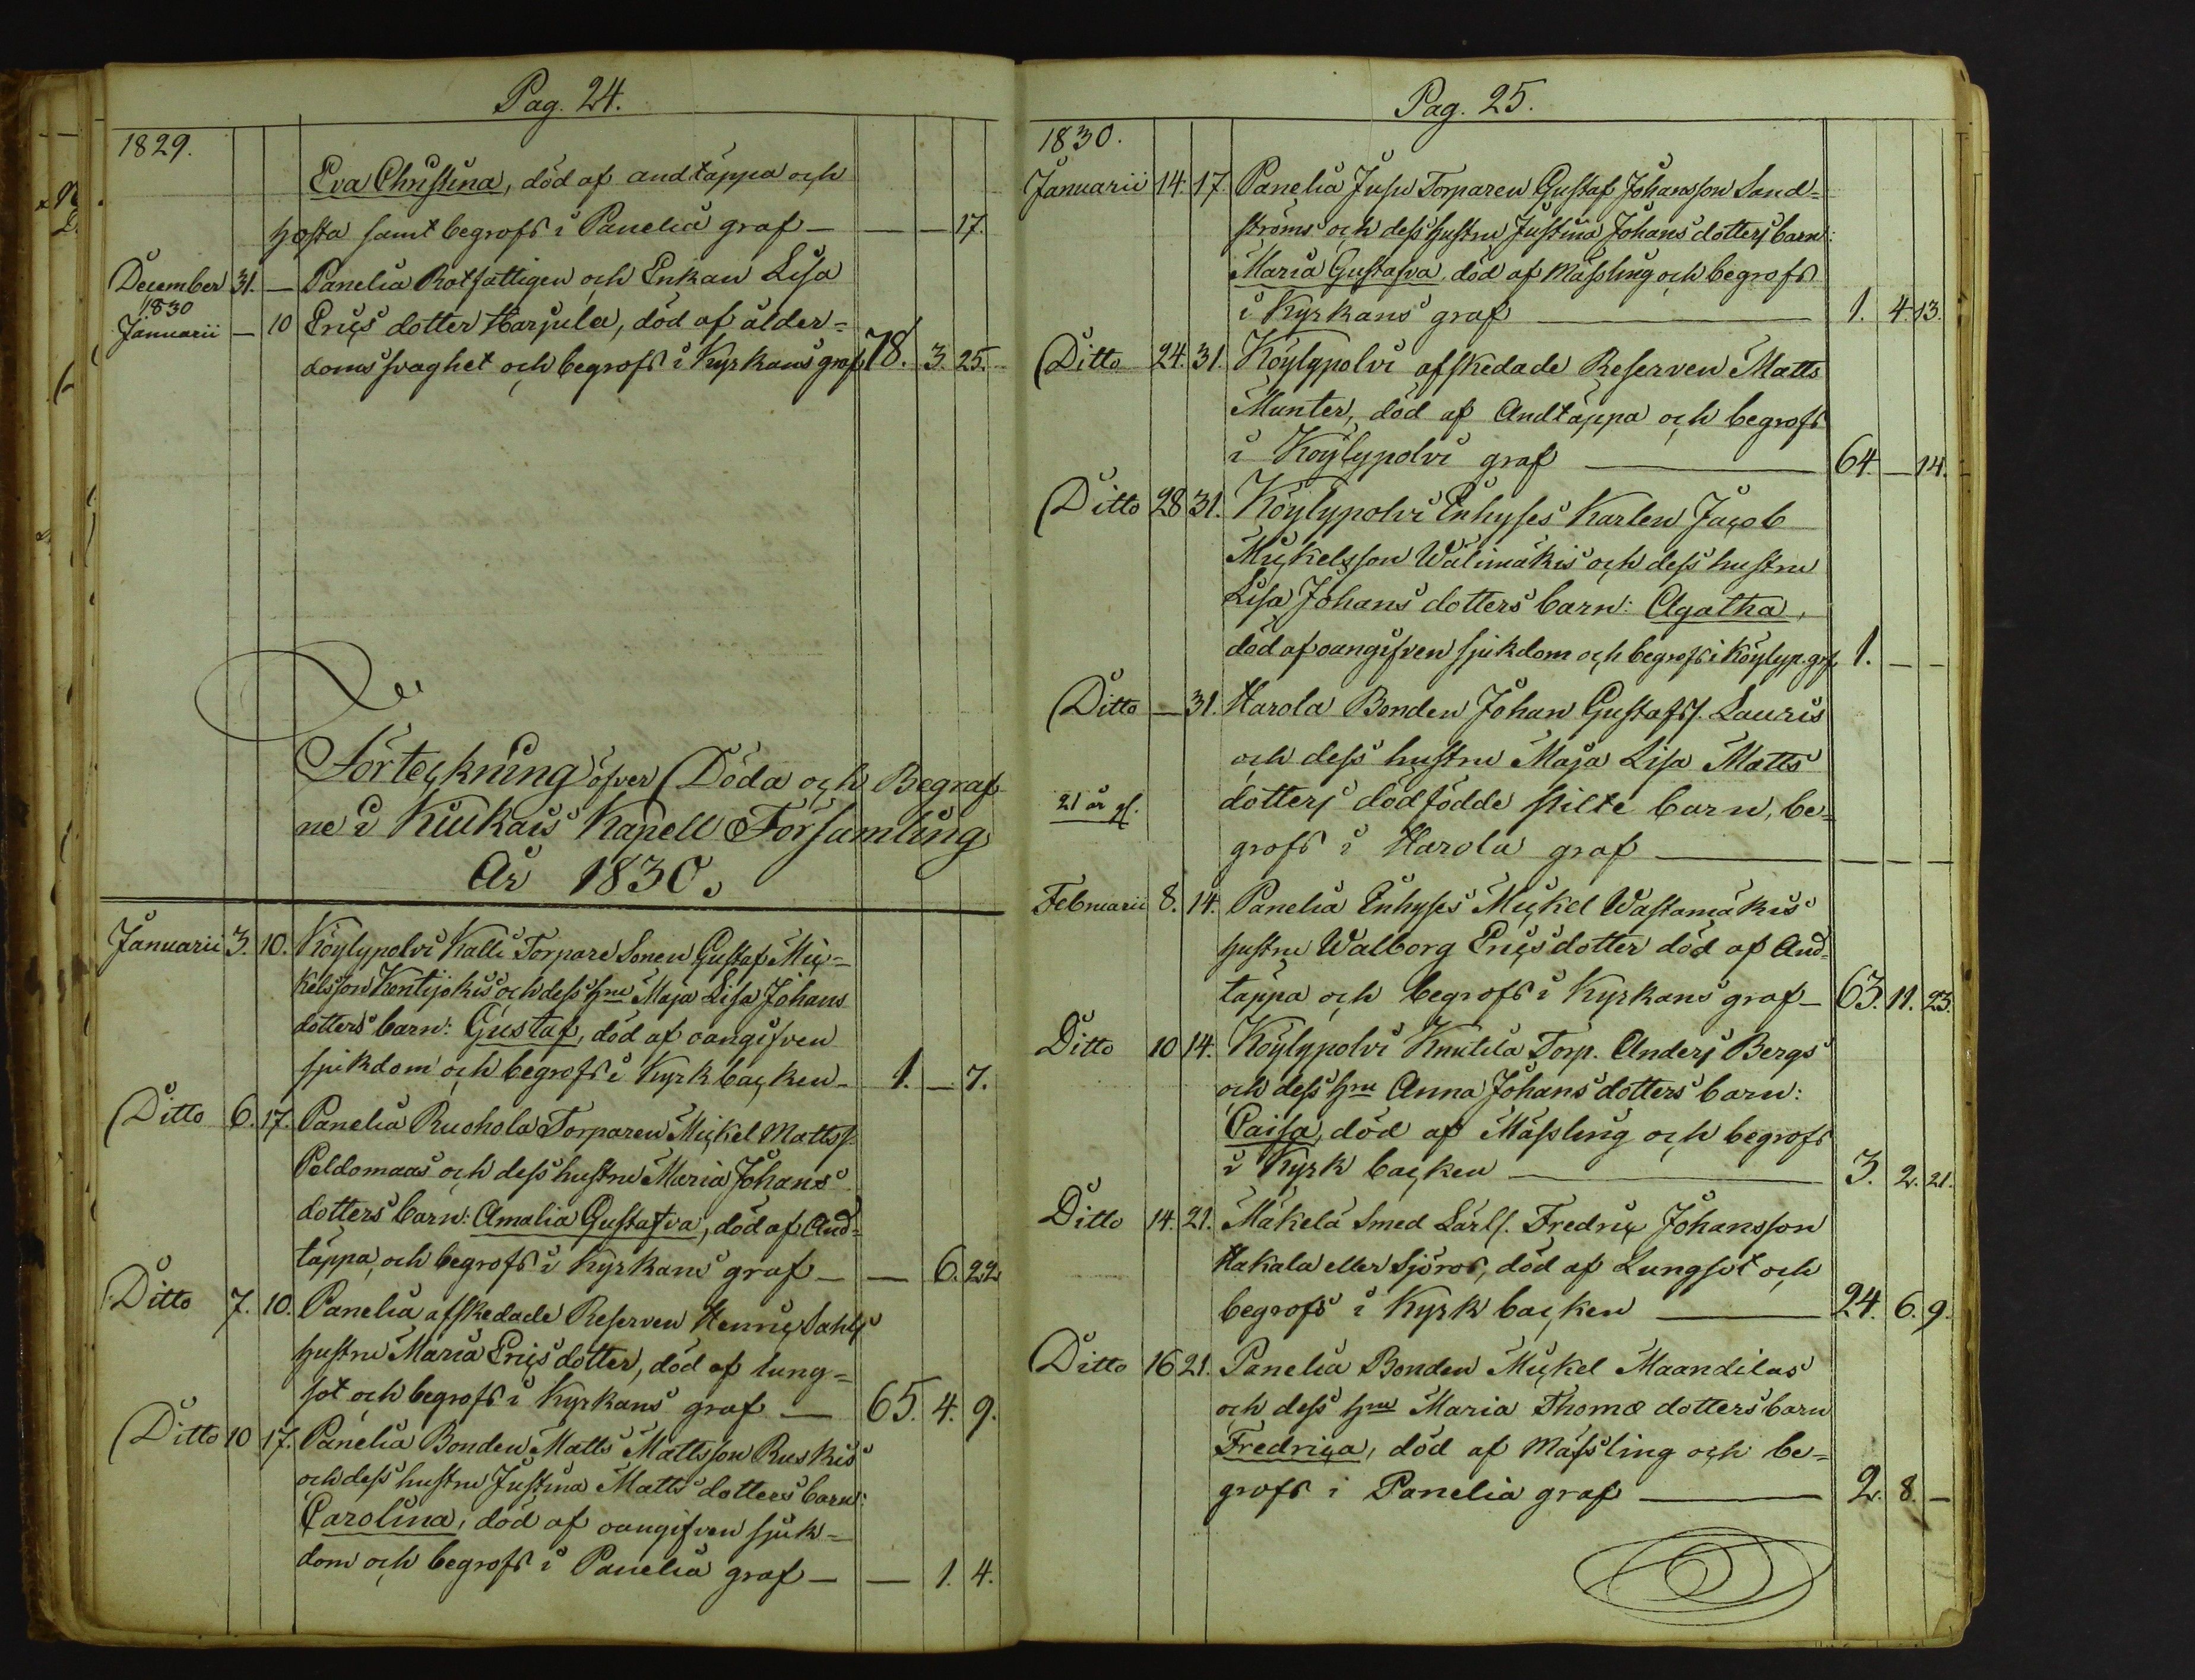 Pag. 24.
1829.
Eva Christina, död af andtäppa och
hosta samt begrofs i Panelia graf — — — 17.
December 31. — Panelia Rotfattigen och Enkan Lisa
1830
Januarii — 10 Erics dotter Harjula, död af ålder-
domssvaghet och begrofs i Kyrkans graf 78. 3. 25.
Förteckning öfver Döda och Begraf
ne i Kiukais Kapell Församling
År 1830.
Januarii 3. 10. Köylypolvi Kalli Torpare Sonen Gustaf Mic-
kelsson Kontijokis och dess hru Maja Lisa Johans
dotters barn: Gustaf, död af oangifven
sjukdom och begrofs i Kyrkbacken — 1. — 7.
Ditto 6. 17. Panelia Ruohola Torparen Mickel Mattss.
Peldomaas och dess hustru Maria Johans
dotters barn: Amalia Gustafva, död af And-
täppa och begrofs i Kyrkans graf — — 6. 22
Ditto 7. 10. Panelia afskedade Reserven Henric Sahls
hustru Maria Erics dotter, död af lung-
sot och begrofs i Kyrkans graf — 65. 4. 9.
Ditto 10 17. Panelia Bonden Matts Mattsson Ruskis
och dess hustru Justina Matts dotters barn:
Carolina, död af oangifven sjuk-
dom och begrofs i Panelia graf — — 1. 4.
Pag. 25.
1830.
Januarii 14. 17. Panelia Jusu Torparen Gustaf Johansson Sand-
ströms och dess hustru Justina Johans dotters barn:
Maria Gustafva, död af Mässling och begrofs
i Kyrkans graf — 1. 4. 13.
Ditto 24. 31. Köylypolvi afskedade Reserven Matts
Munter, död af Andtäppa och begrofs
i Köylypolvi graf — 64. — 14.
Ditto 28 31. Köylypolvi Inhyses Karlen Jacob
Mickelsson Wälimäkis och dess hustru
Lisa Johans dotters barn: Agatha,
död af oangifven sjukdom och begrofs i Köylyp. grf. 1. — —
Ditto — 31. Harola Bonden Johan Gustafss. Lauris
och dess hustru Maja Lisa Matts
21 år gl. dotters dödfödde flickebarn, be-
grofs i Harola graf — — — —
Februarii 8. 14. Panelia Inhyses Mickel Wastamäkis
hustru Walborg Erics dotter död af And-
täppa och begrofs i Kyrkans graf — 63. 11. 23.
Ditto 10 14. Köylypolvi Knutila Torp. Anders Bergs
och dess hru Anna Johans dotters barn:
Caisa, död af Mässling och begrofs
i Kyrk backen — 3. 2. 21.
Ditto 14. 21. Mäkelä Smed Lärl. Fredric Johansson
Hakala eller Sjöros, död af Lungsot och
begrofs i Kyrk backen — 24. 6. 9.
Ditto 16 21. Panelia Bonden Mickel Maandilas
och dess hru Maria Thomæ dotters barn
Fredrica, död af Mässling och be-
grofs i Panelia graf — 2. 8. —